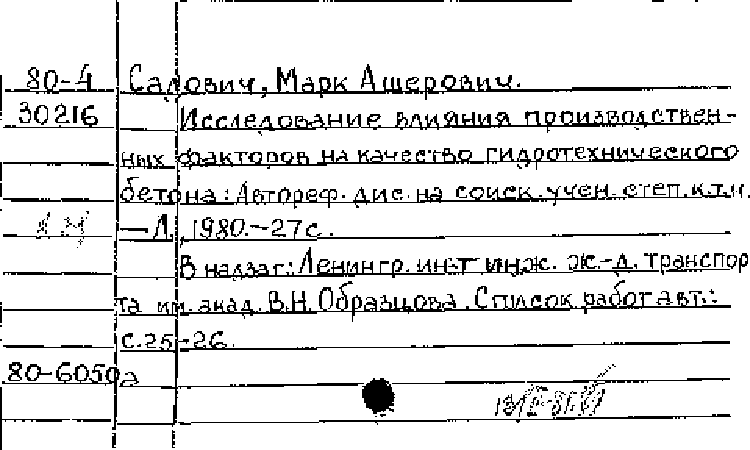 80-4 Садович, Марк Ашерович.
30216 Исследование влияния производствен-
ных факторов на качество гидротехнического
бетона: Автореф. дис. на соиск. учен. степ. к.т.н.
—Л., 1980.-27с.
В надзаг.: Ленингр. инст инж. ж.-д. транспор
та им. акад. В.Н. Образцова. Список работ авт.:
с.25-26.
80-6050а